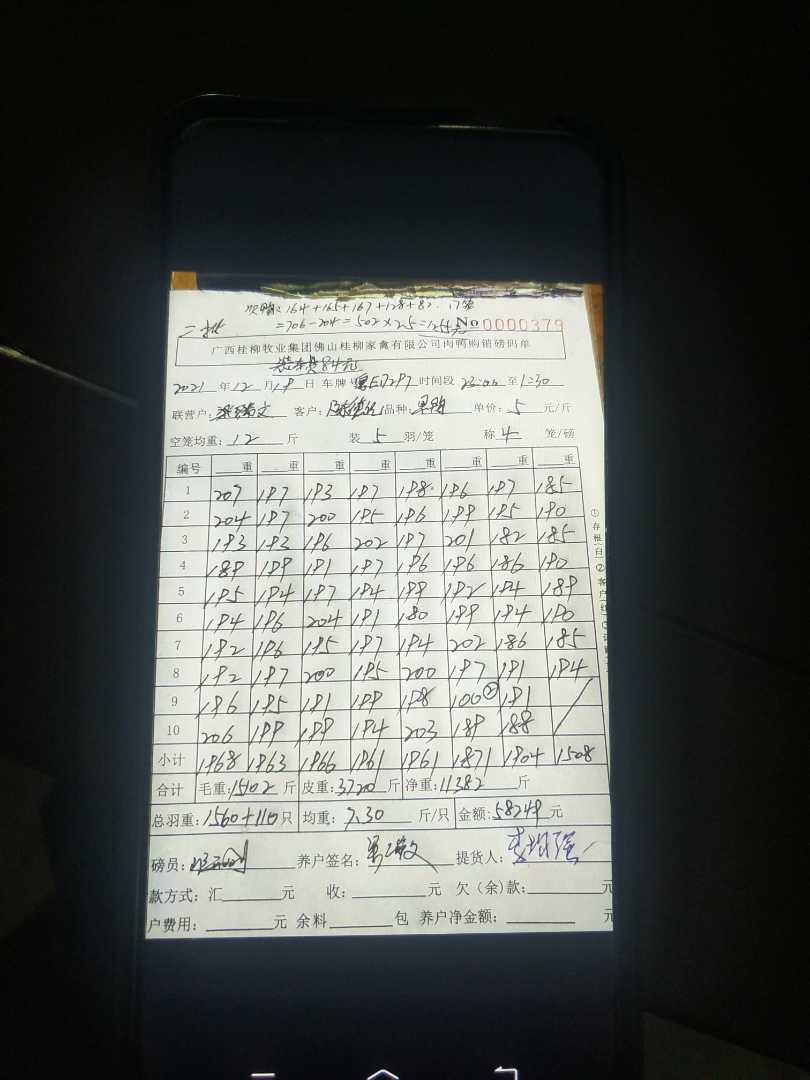 164+165+167+128+82
=706-204=502×2.5=1255元 No 0000379
广西桂柳牧业集团佛山桂柳家禽有限公司肉鸭购销磅码单
装车费84元
2021 年 12 月 19 日 车牌 时间段 23:00 至 1:30
联营户: 客户: 品种: 单价: 5 元/斤
空笼均重: 12 斤 装 5 羽/笼 称 4 笼/磅
编号 重 重 重 重 重 重 重 重
1 207 197 193 197 198 196 197 185
2 204 197 200 195 196 199 195 190
3 193 193 196 202 197 201 182 185
4 189 199 191 197 196 196 186 190
5 195 194 197 194 199 192 194 189
6 194 196 204 191 180 199 194 190
7 192 196 195 197 194 202 186 185
8 192 197 200 195 200 197 191 194
9 196 195 191 199 198 100② 191
10 206 199 199 194 203 189 188
小计 1968 1963 1966 1961 1961 1871 1904 1508
合计 毛重: 15102 斤 皮重: 3720 斤 净重: 11382 斤
总羽重: 1560+110 只 均重: 7.30 斤/只 金额: 58249 元
磅员: 养户签名: 提货人:
款方式: 汇 元 收: 元 欠(余)款: 元
户费用: 元 余料 包 养户净金额: 元
①存根(白)②客户(红)